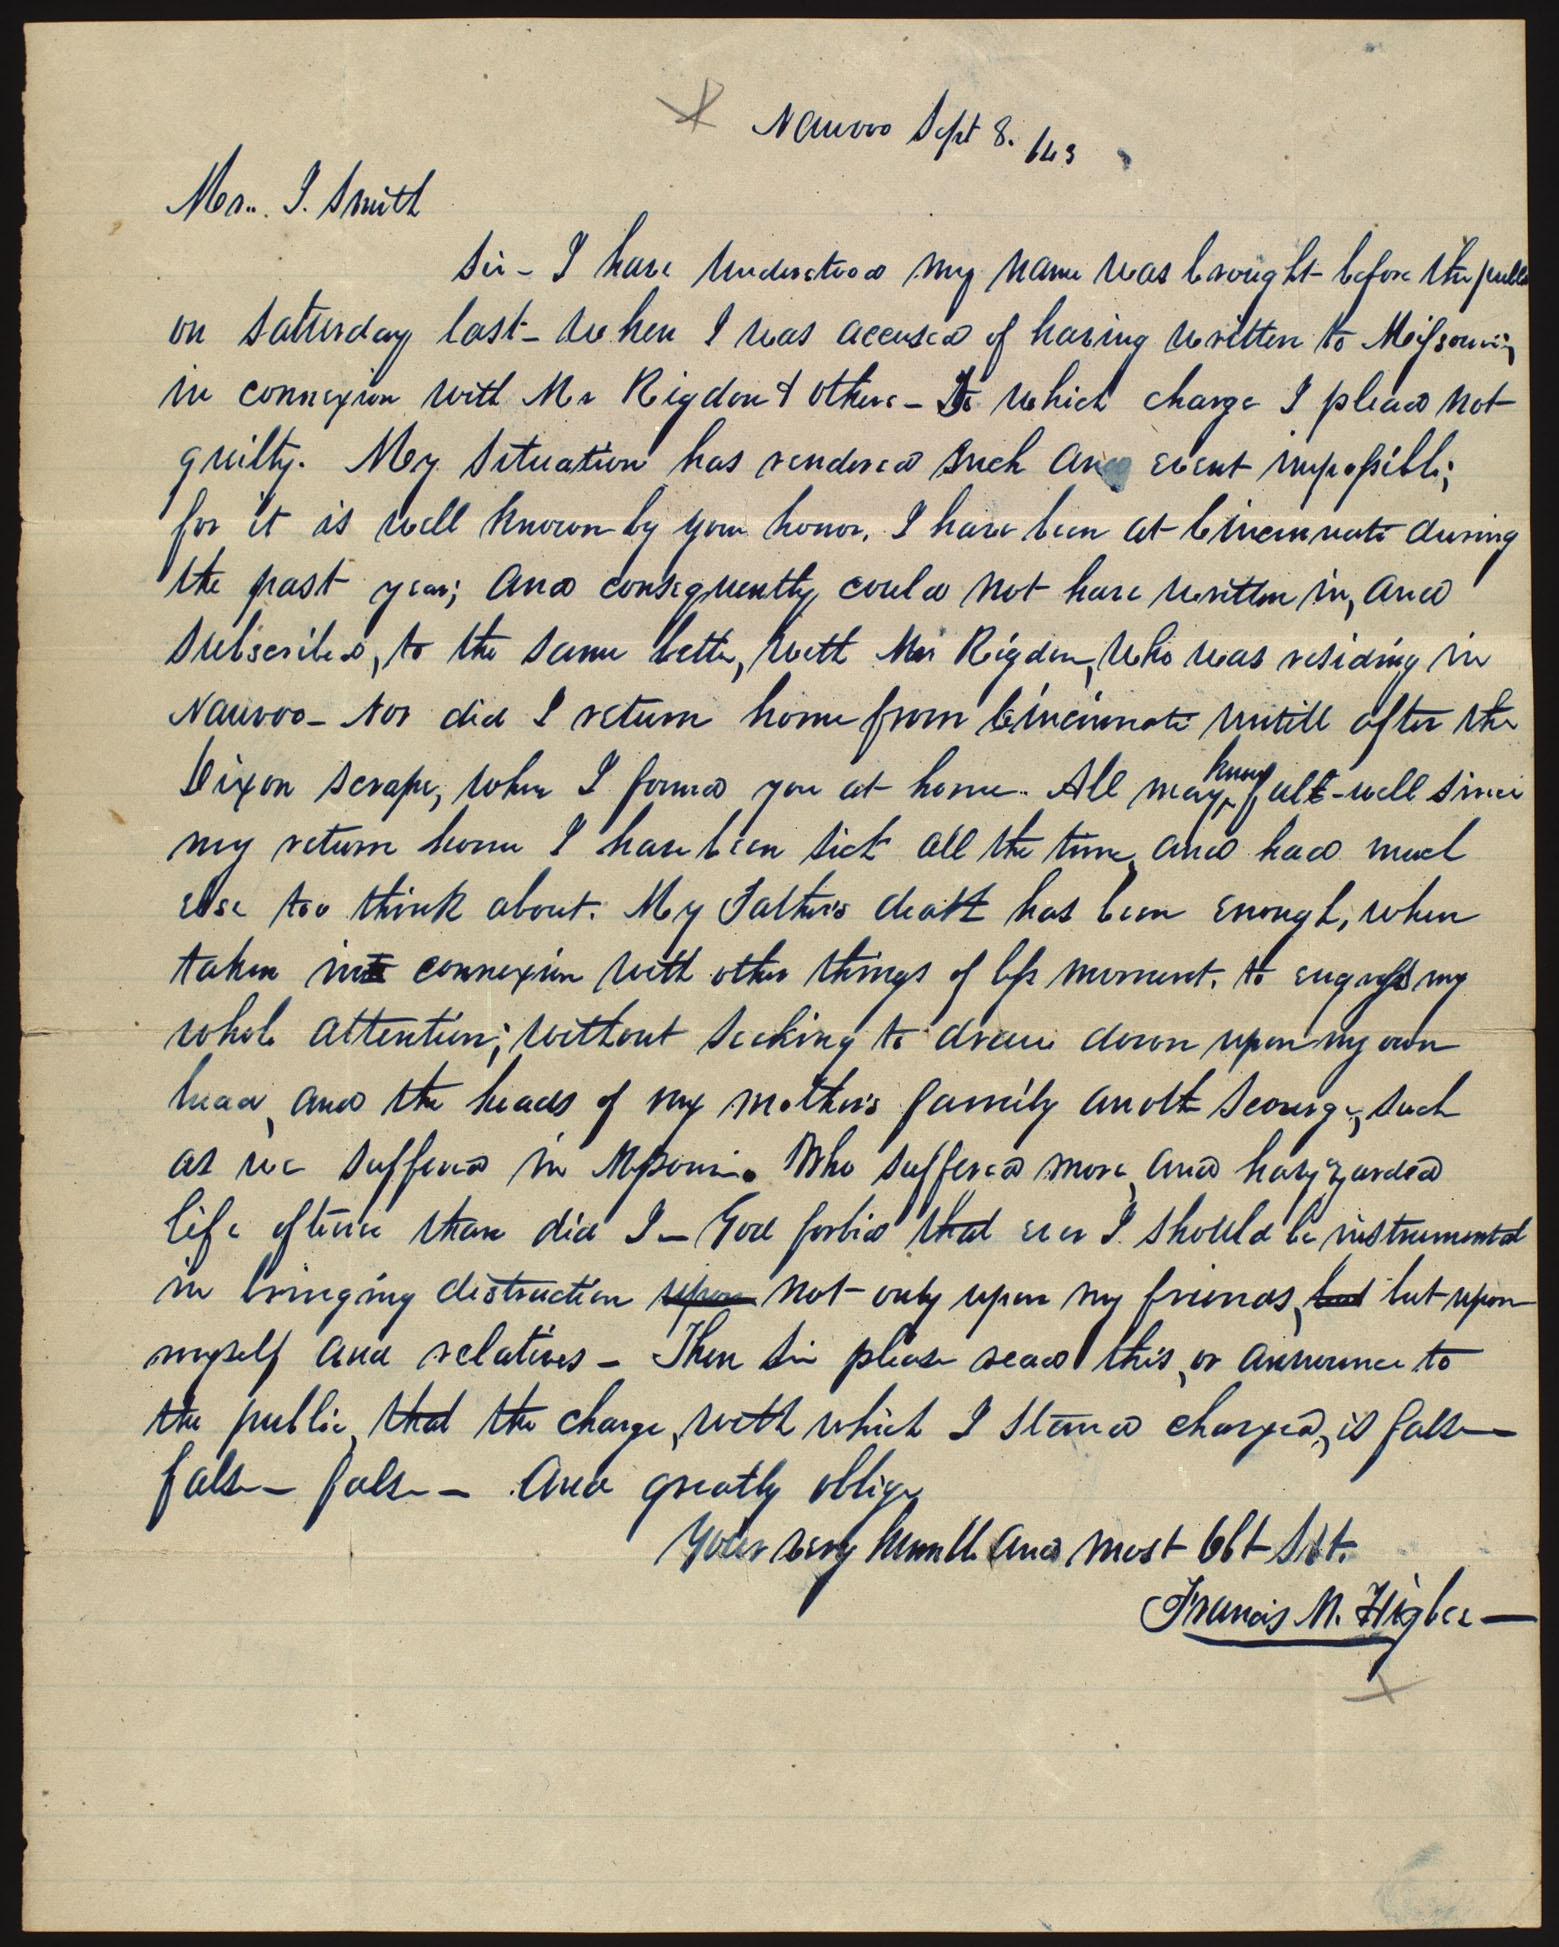 Nauvoo Sept 8. /43
Mr.. J. Smith
Sir – I have understood my name was brought before the public
on Saturday last – when I was accused of having written to Missouri,
in connexion with Mr Rigdon & others – To which charge I plead not
guilty. My situation has rendered such an event impossible;
for it is well known by your honor, I have been at Cincinnati during
the past year; and consequently could not have written in, and
subscribed, to the same letter, with Mr Rigdon, who was residing in
Nauvoo – Nor did I return home from Cincinnati untill after the
Dixon scrape, when I found you at home.. All may know full-well since
my return home I have been sick all the time, and had much
else too think about. My Father's death has been enough, when
taken in connexion with other things of less moment, to engross my
whole attention; without seeking to draw down upon my own
head, and the heads of my mother's family anoth scourge, such
as we suffered in Missouri. Who suffered more, and hazzarded
life oftener than did I – God forbid that ever I should be instrumental
in bringing distruction upon not only upon my friends, but but upon
myself and relatives – Then Sir please read this, or announce to
the public, that the charge, with which I stand charged, is false –
false – false – And greatly oblige
Your very humble and most Obt Svt.
Francis M. Higbee –